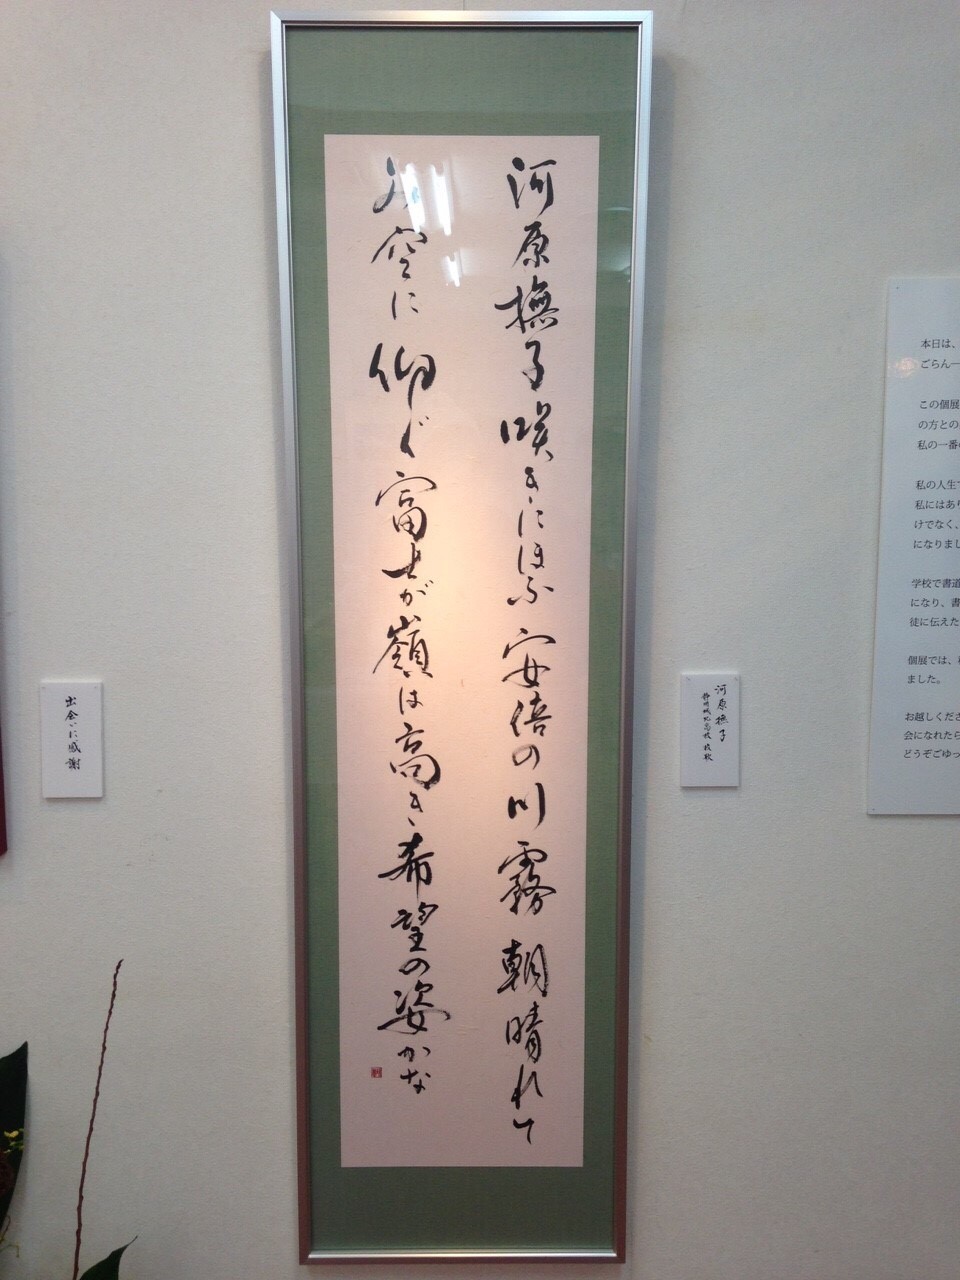 河原撫子咲きにほふ安倍の川霧朝晴れて
み空に仰ぐ富士が嶺は高き希望の姿かな
河原撫子
静岡城北高校 校歌
出会いに感謝
本日は、
ごらん一
この個展
の方との
私の一番
私の人生で
私にはあり
けでなく、
になりまし
学校で書道
になり、書
徒に伝えた
個展では、
ました。
お越しくださ
会になれたら
どうぞごゆっ